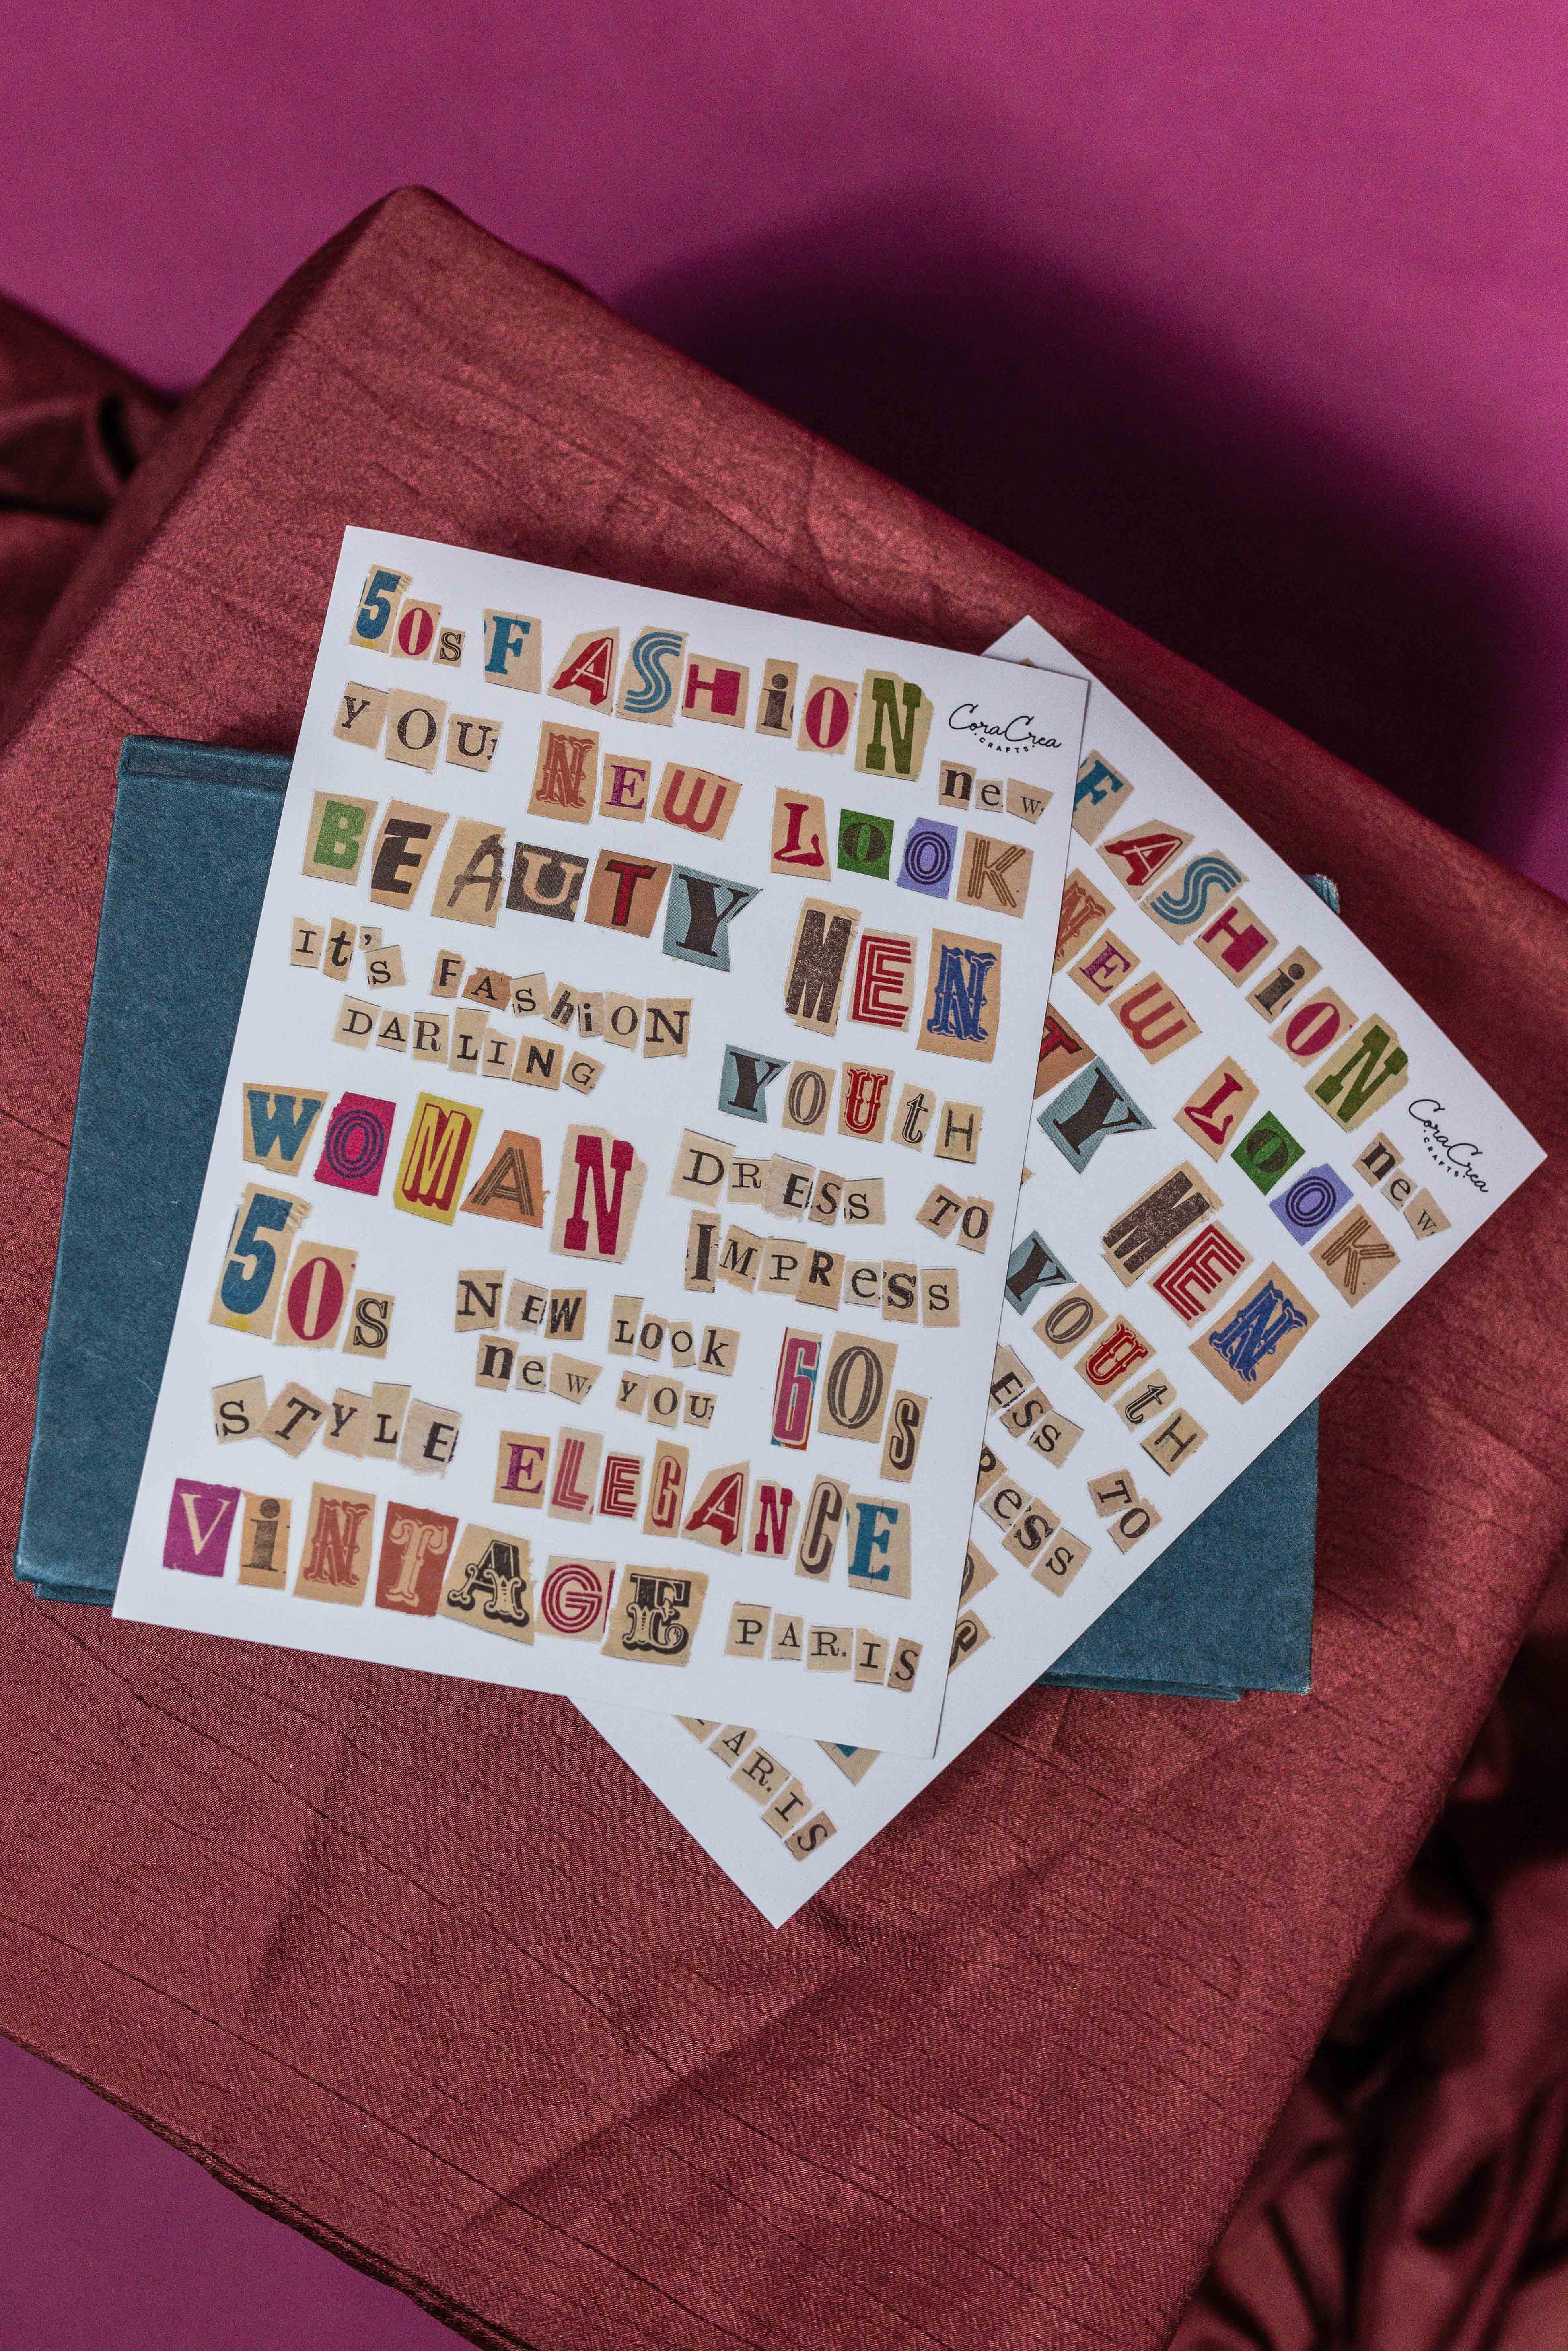 50s FASHiON
CoraCrea
CRAFTS
YOU NEW LOOK new
BEAUTY MEN
It's FAShiON
DARLING
YOUtH
WOMAN DRESS TO
IMPReSS
50s NEW LOOk 60s
new YOU
STYLE ELEGANCE
ViNTAGE PARIS
FASHiON
CoraCrea
CRAFTS
NEW LOOK new
TY MEN
YOUtH
ESS TO
PReSS
PARIS